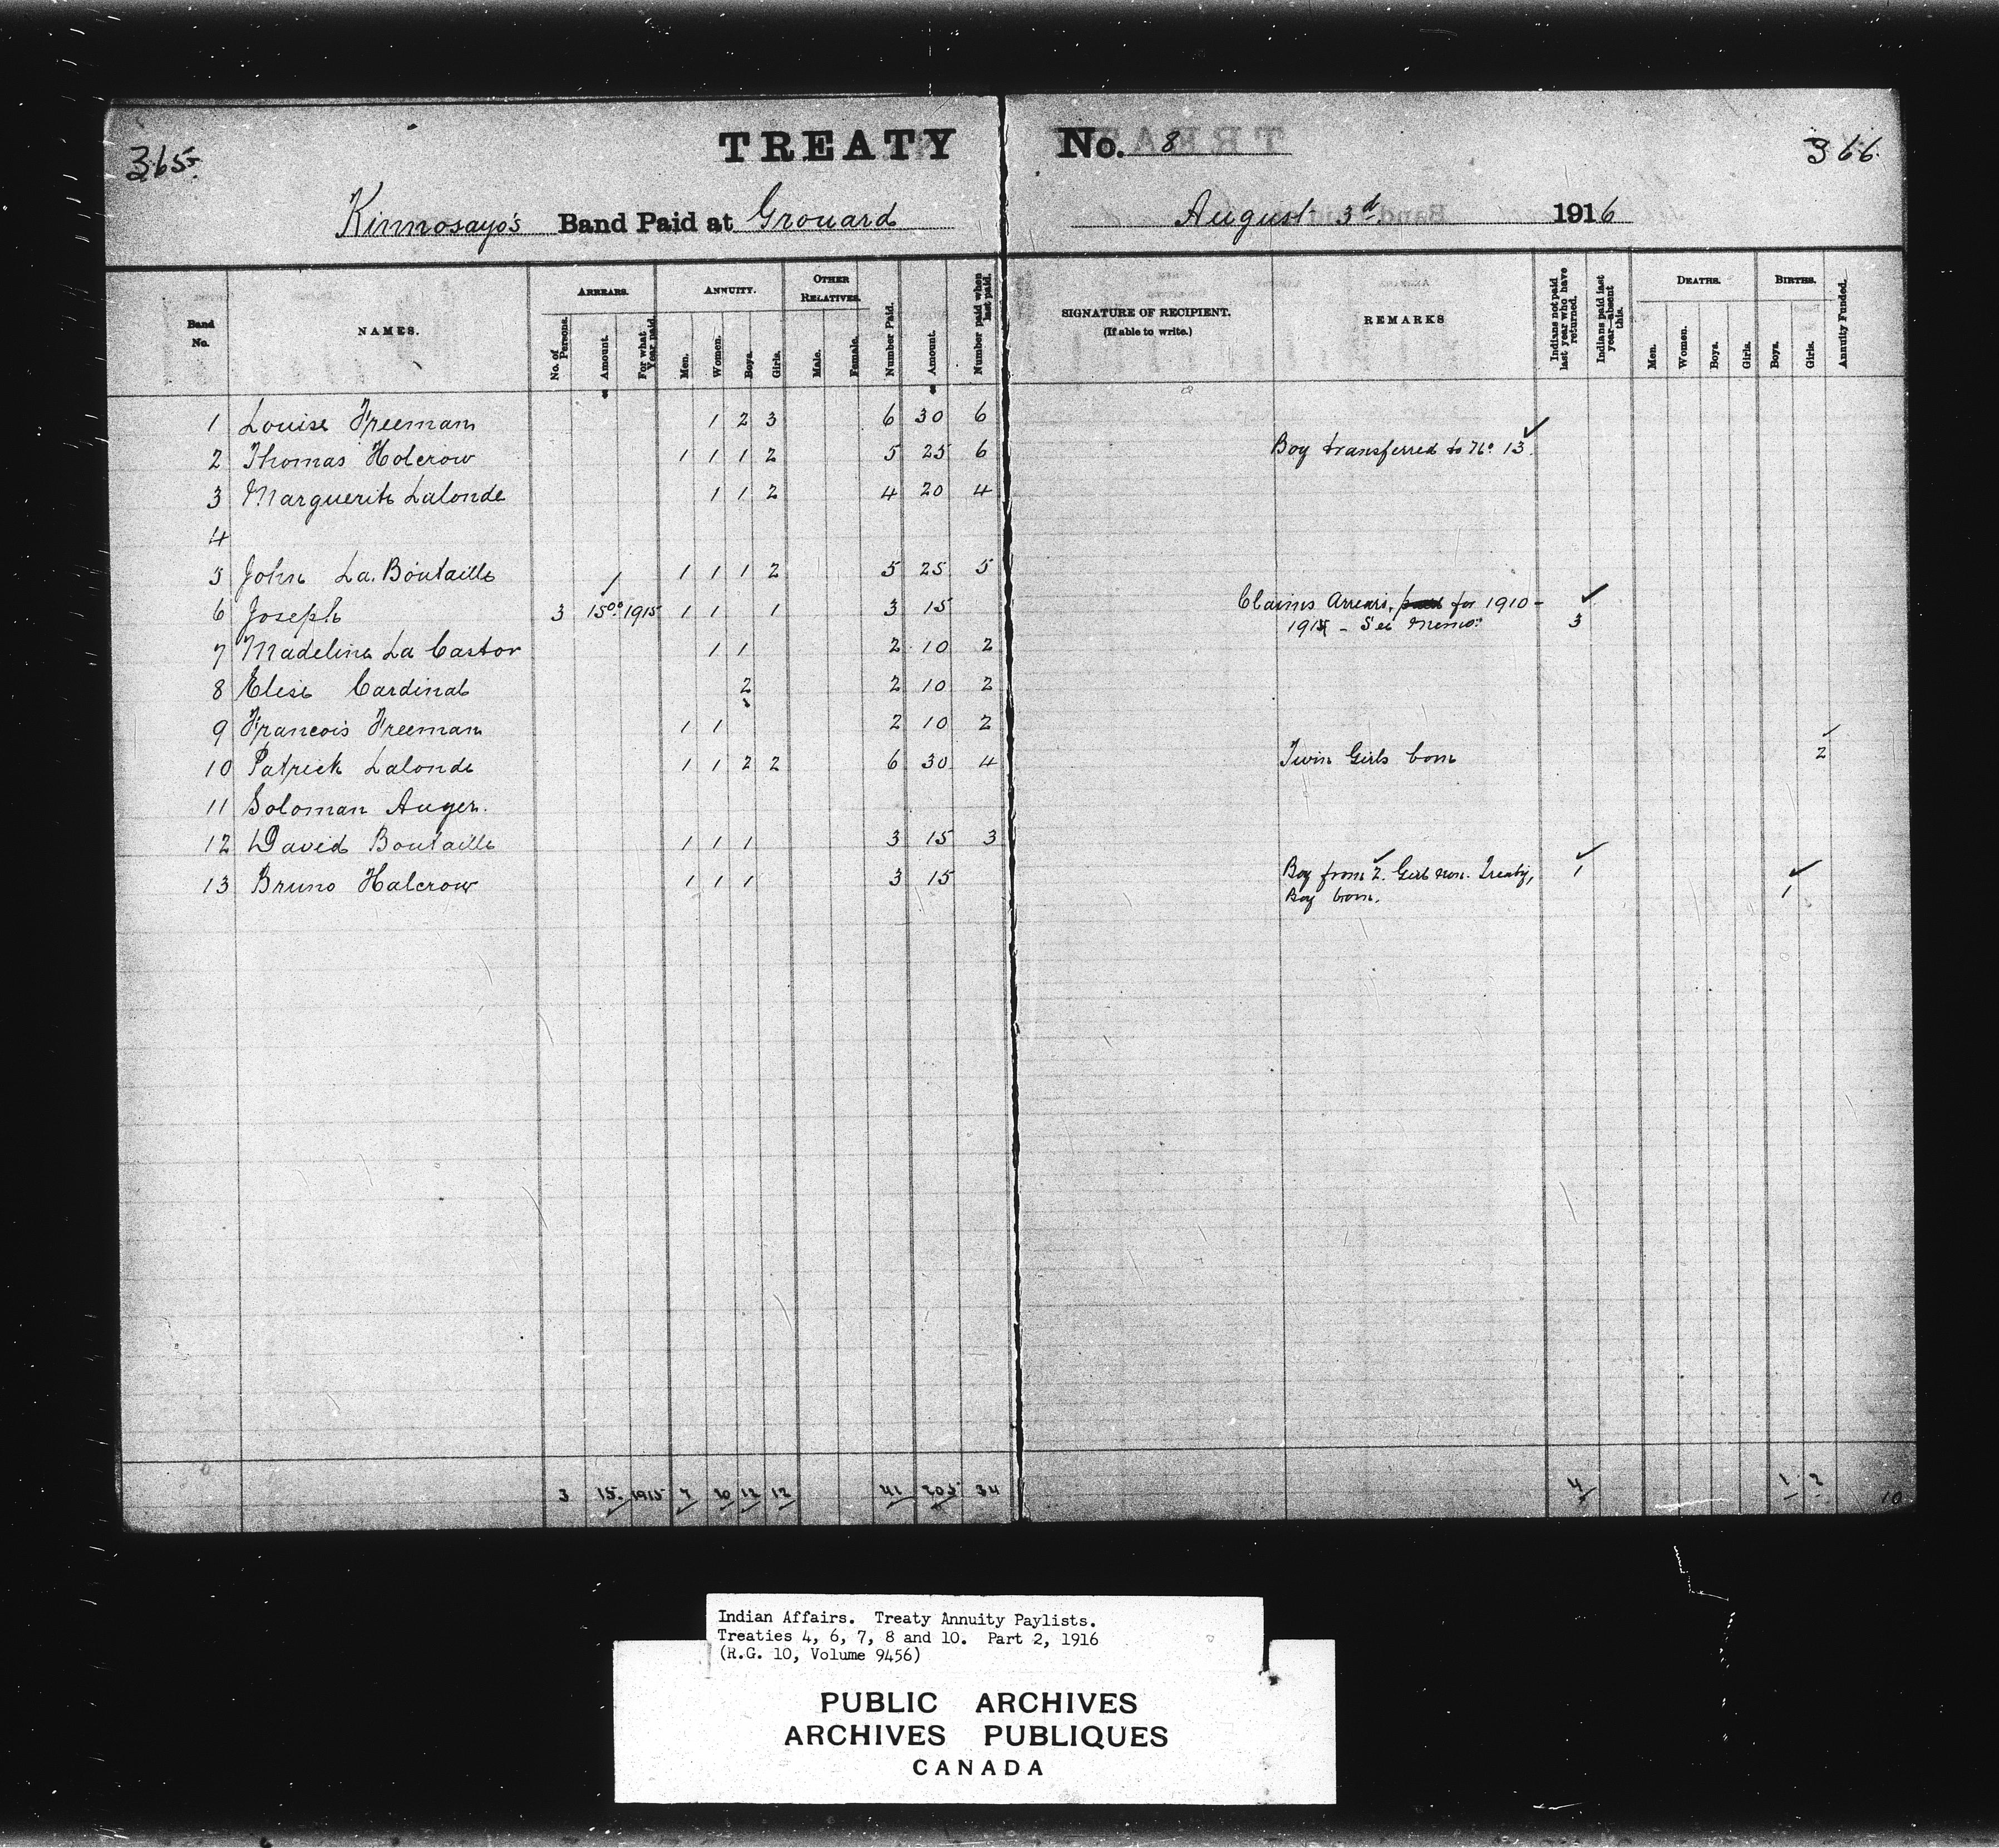 365. TREATY No. 8 366.
Kinnosayo's Band Paid at Grouard August 3d 1916
Band No. NAMES. ARREARS. No. of Persons. Amount. For what Year paid. ANNUITY. Men. Women. Boys. Girls. OTHER RELATIVES. Male. Female. Number Paid. Amount. Number paid when last paid. SIGNATURE OF RECIPIENT. (If able to write.) REMARKS Indians not paid last year who have returned. Indians paid last year—absent this. DEATHS. Men. Women. Boys. Girls. BIRTHS. Boys. Girls. Annuity Funded.
1 Louise Freeman 1 2 3 6 30 6
2 Thomas Holcrow 1 1 1 2 5 25 6 Boy transferred to No 13.
3 Marguerite Lalonde 1 1 2 4 20 4
4
5 John La. Boutaille 1 1 1 2 5 25 5
6 Joseph 3 15.00 1915 1 1 1 3 15 Claims Arrears, for 1910-
1915 - See Memo: 3
7 Madeline La Castor 1 1 2 10 2
8 Elise Cardinal 2 2 10 2
9 Francois Freeman 1 1 2 10 2
10 Patrick Lalonde 1 1 2 2 6 30 4 Twin Girls born 2
11 Soloman Auger.
12 David Boutaille 1 1 1 3 15 3
13 Bruno Halcrow 1 1 1 3 15 Boy from 2. Girl non. Treaty, 1 1
Boy born.
3 15. 1915 7 10 12 12 41 205 34 4 1 2 10
Indian Affairs. Treaty Annuity Paylists.
Treaties 4, 6, 7, 8 and 10. Part 2, 1916
(R.G. 10, Volume 9456)
PUBLIC ARCHIVES
ARCHIVES PUBLIQUES
CANADA